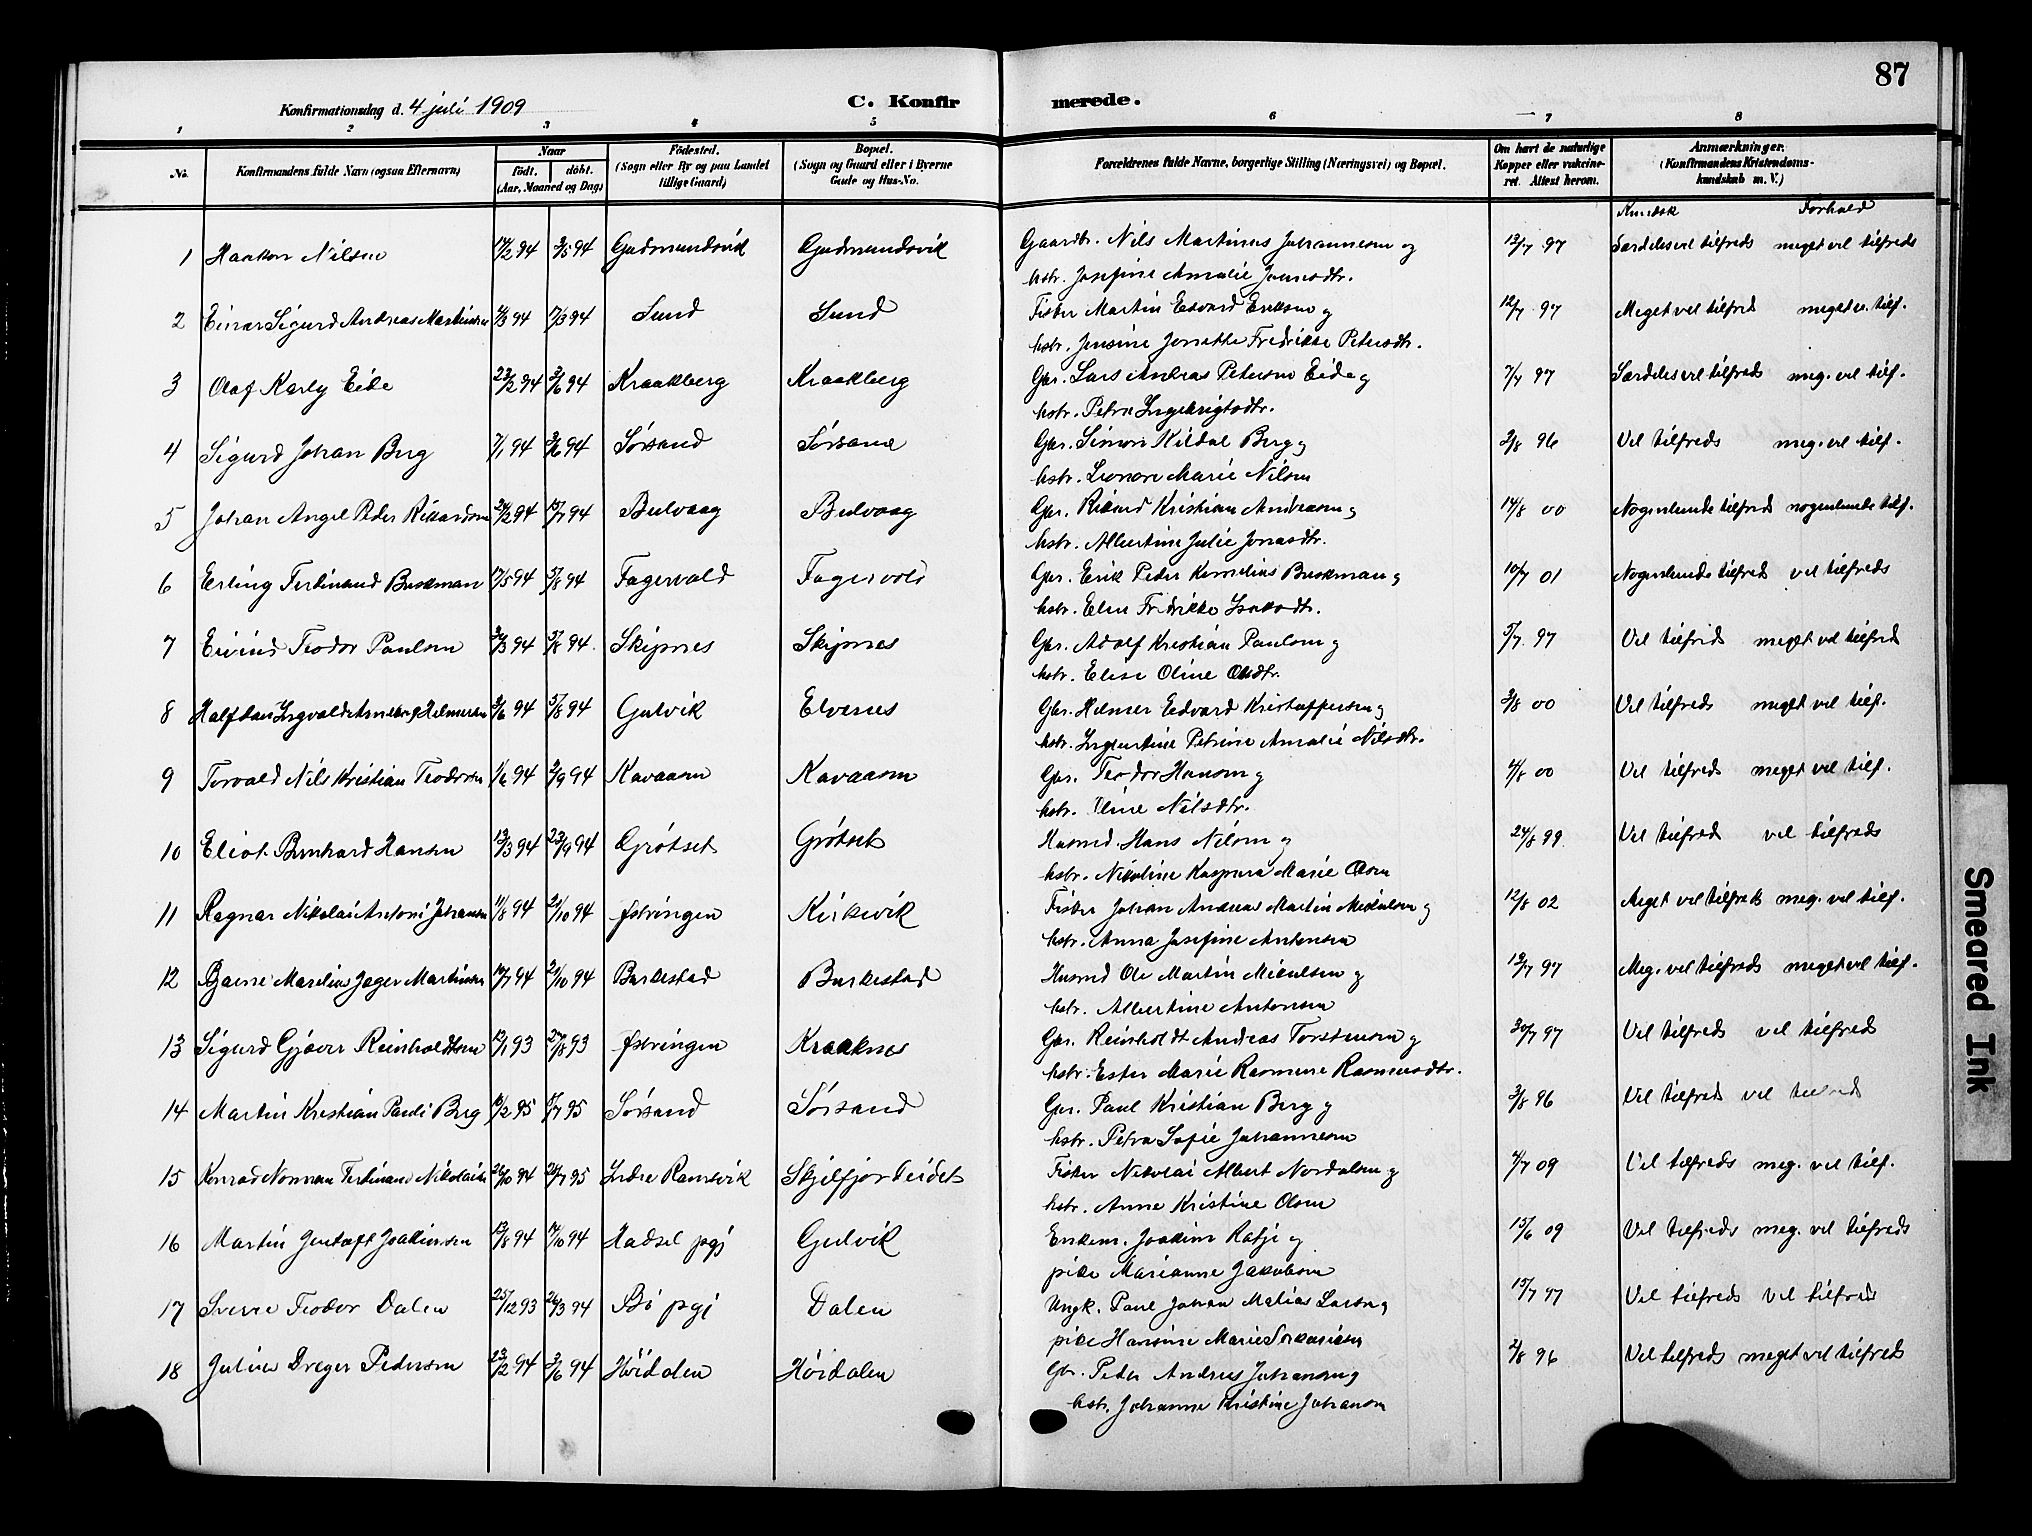 87
Konfirmationsdag d. 4 juli 1909
C. Konfir merede.
1 2 3 4 5 6 7 8
No.
Konfirmandens fulde Navn (ogsaa Efternavn)
Naar
født. døbt.
(Aar, Maaned og Dag)
Fødested.
(Sogn eller By og paa Landet
tillige Gaard)
Bopæl.
(Sogn og Gaard eller i Byerne
Gade og Hus-No.
Forældrenes fulde Navne, borgerlige Stilling (Næringsvei) og Bopæl.
Om havt de naturlige
Kopper eller vakcine-
ret. Attest herom.
Anmærkninger.
(Konfirmandens Kristendoms-
kundskab m. V.)
Kundsk Forhold
1 Haakon Nilsen 17/2 94 3/5 94 Gudmundsvik Gudmundsvik Gaardbr. Nils Martinus Johannesen og 12/7 97 Særdeles vel tilfreds meget vel tilfreds
hstr. Josefine Amalie Jonsdtr.
2 Einar Sigurd Andreas Martinsen 94 94 Sund Sund Fisker Martin Edvard Eriksen og 12/7 97 Meget vel tilfred meget v. tilf.
hstr. Jensine Jonette Fredrikke Petersdtr.
3 Olaf Karly Eide 23/2 94 3/6 94 Kraakberg Kraakberg Gbr. Lars Andreas Petersen Eide og 7/7 97 Særdeles vel tilfreds meg. vel tilf.
hstr. Petra Ingebrigtsdtr.
4 Sigurd Johan Berg 7/1 94 3/6 94 Sørsand Sørsand Gbr. Simon Kildal Berg og 3/8 96 Vel tilfreds meg. vel tilf.
hstr. Leonore Marie Nilsen
5 Johan Angel Peder Rikardsen 94 15/7 94 Bulvaag Bulvaag Gbr. Rikard Kristian Andreasen og 14/8 00 Nogenlunde tilfreds nogenlunde tilf.
hstr. Albertine Julie Jonasdtr.
6 Erling Ferdinand Buskman 17/5 94 5/8 94 Fagervold Fagervold Gbr. Erik Peder Kornelius Buskman og 10/7 01 Nogenlunde tilfreds vel tilfreds
hstr. Elen Fredrikke Isaksdtr.
7 Eivind Teodor Paulsen 94 5/8 94. Skipnes Skipnes Gbr. Adolf Kristian Paulsen og 5/7 97 Vel tilfreds meget vel tilfreds
hstr. Elise Oline Olsdtr.
8 Halfdan Ingvald Helmersen 3/6 94 5/8 94 Gulvik Elvenes Gbr. Helmer Edvard Kristoffersen og 3/8 00 Vel tilfreds meget vel tilf.
hstr. Ingertine Petrine Amalie Nilsdtr.
9 Torvald Nils Kristian Teodorsen 1/6 94 2/9 94 Kavaasen Kavaasen Gbr. Teodor Hansen og 4/8 00 Vel tilfreds meget vel tilf.
hstr. Oline Nilsdtr.
10 Eliot Bernhard Hansen 13/3 94 23/9 94 Grøtset Grøtset Husmd. Hans Nilsen og 24/8 99. Vel tilfreds vel tilfreds
hstr. Nikoline Kaspara Marie Olsen
11 Ragnar Nikolai Antoni Johansen 11/8 94 21/10 94 Føringen Kirkevik Fisker Johan Andreas Martin Mikalsen og 12/8 02 Meget vel tilfreds meg. vel tilf.
hstr. Anna Josefine Antonsen
12 Bjarne Marelius Jæger Martinsen 10/7 94 21/10 94 Barkestad Barkestad Husmd Ole Martin Mikalsen og 13/7 97 Meg. vel tilfreds meget vel tilf.
hstr. Albertine Antonsen
13 Sigurd Gjøver Reinholdtsen 12/1 93 27/8 93 Føringen Kraaknes Gbr. Reinholdt Andreas Torstensen og 30/7 97 Vel tilfreds vel tilfreds
hstr. Ester Marie Rasmine Rasmusdtr.
14 Martin Kristian Pauli Berg 10/2 95 7/7 95 Sørsand Sørsand Gbr. Paul Kristian Berg og 3/8 96 Vel tilfreds vel tilfreds
hstr. Petra Sofie Johannesen
15 Konrad Norman Ferdinand Nikolaisen 26/10 94 28/7 95 Indre Ramsvik Skjelfjordeidet Fisker Nikolai Albert Nordalsen og 4/7 09 Vel tilfreds meg. vel tilf.
hstr. Anne Kristine Olsen
16 Martin Gustaft Joakimsen 13/8 94 7/10 94 Hadsel pgj Gulvik Enkem. Joakim Rafji og 15/6 09 Vel tilfreds meg. vel tilfreds
pike Marianne Jakobsen
17 Sverre Teodor Dalen 25/12 93 26/3 94 Bø pgj Dalen Ungk. Paul Johan Matias Larsen og 15/7 97 Vel tilfreds Vel tilfreds
pike Hansine Marie
18 Julius Dreyer Pedersen 23/2 94 3/6 94 Høidalen Høidalen Gbr. Peder Andreas Johansen og 2/8 96 Vel tilfreds meget vel tilfreds
hstr. Johanne Kristine Johansen
Smeared Ink